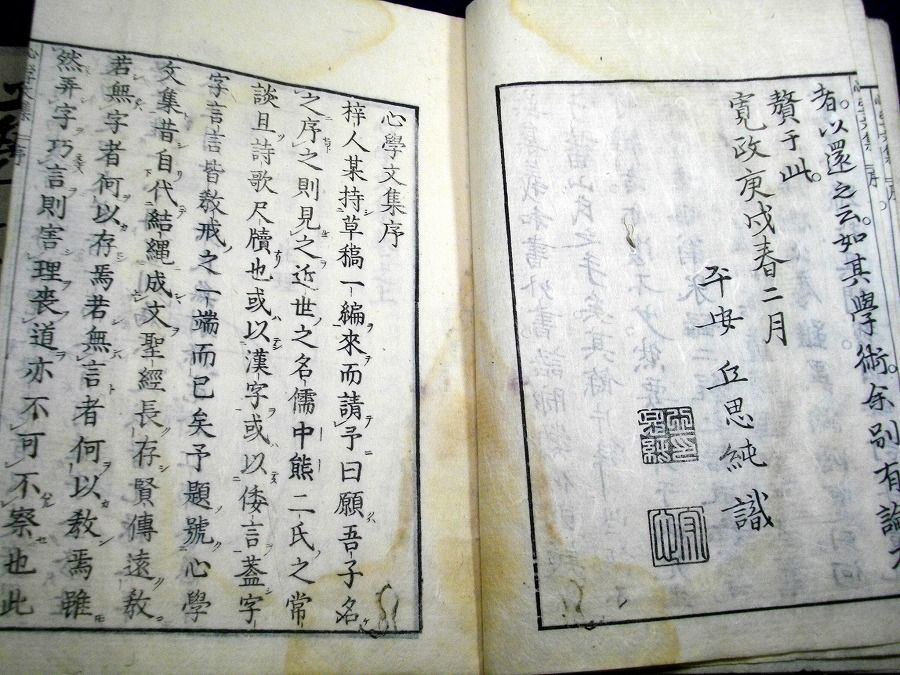 者。以還之云。如其學術。余別有論
贅于此。
寛政庚戌春二月
平安 丘思純 識
心學文集序
梓人某持草稿一編來而請予曰願吾子名
之序之則見之近世之名儒中熊二氏之常
談且詩歌尺牘也或以漢字或以倭言葢字
字言言皆敎戒之一端而已矣予題號心學
文集昔自代結繩成文聖經長存賢傳遠敎
若無字者何以存焉若無言者何以敎焉雖
然弄字巧言則害理喪道亦不可不察也此